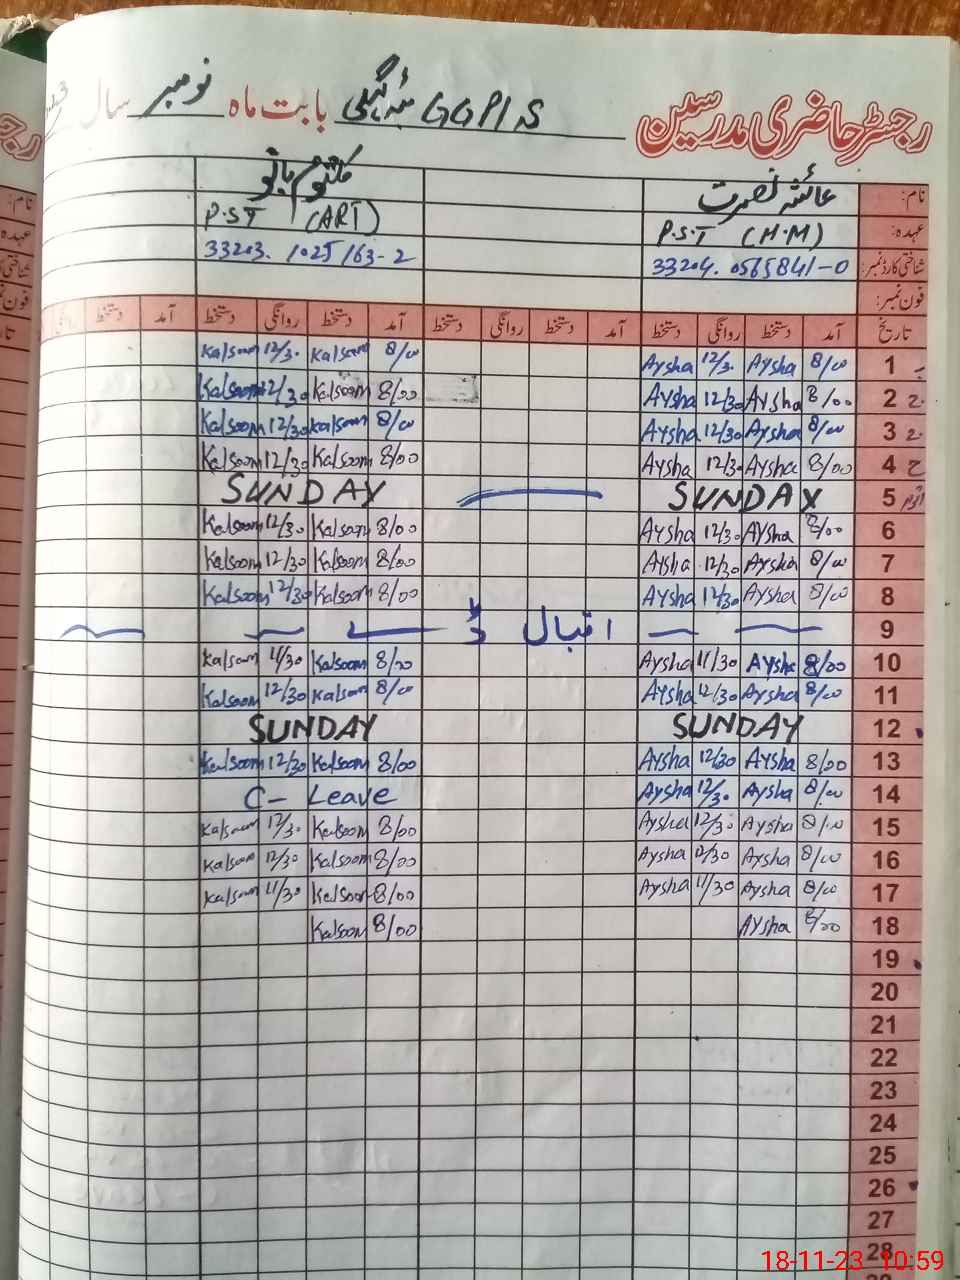 رجسٹر حاضری مدرسین GGPI/S بابت ماہ نومبر سال
نام: عائشہ نصرت کلثوم بانو
عہدہ: P.S.T (H.M) P.S.T (ART)
شناختی کارڈ نمبر: 33204. 0565841-0 33203. 1025163-2
فون نمبر:
تاریخ آمد دستخط روانگی دستخط آمد دستخط روانگی دستخط آمد دستخط روانگی دستخط آمد دستخط
1 8/00 Aysha 12/30 Aysha 8/00 Kalsoom 12/30 Kalsoom
2 8/00 Aysha 12/30 Aysha 8/00 Kalsoom 12/30 Kalsoom
3 8/00 Aysha 12/30 Aysha 8/00 Kalsoom 12/30 Kalsoom
4 8/00 Aysha 12/30 Aysha 8/00 Kalsoom 12/30 Kalsoom
5 SUNDAY SUNDAY
6 8/00 Aysha 12/30 Aysha 8/00 Kalsoom 12/30 Kalsoom
7 8/00 Aysha 12/30 Aysha 8/00 Kalsoom 12/30 Kalsoom
8 8/00 Aysha 12/30 Aysha 8/00 Kalsoom 12/30 Kalsoom
9 اقبال ڈے
10 8/00 Aysha 11/30 Aysha 8/00 Kalsoom 11/30 Kalsoom
11 8/00 Aysha 12/30 Aysha 8/00 Kalsoom 12/30 Kalsoom
12 SUNDAY SUNDAY
13 8/00 Aysha 12/30 Aysha 8/00 Kalsoom 12/30 Kalsoom
14 8/00 Aysha 12/30 Aysha C- Leave
15 8/00 Aysha 12/30 Aysha 8/00 Kalsoom 12/30 Kalsoom
16 8/00 Aysha 12/30 Aysha 8/00 Kalsoom 12/30 Kalsoom
17 8/00 Aysha 11/30 Aysha 8/00 Kalsoom 11/30 Kalsoom
18 8/00 Aysha 8/00 Kalsoom
19
20
21
22
23
24
25
26
27
28
18-11-23 10:59